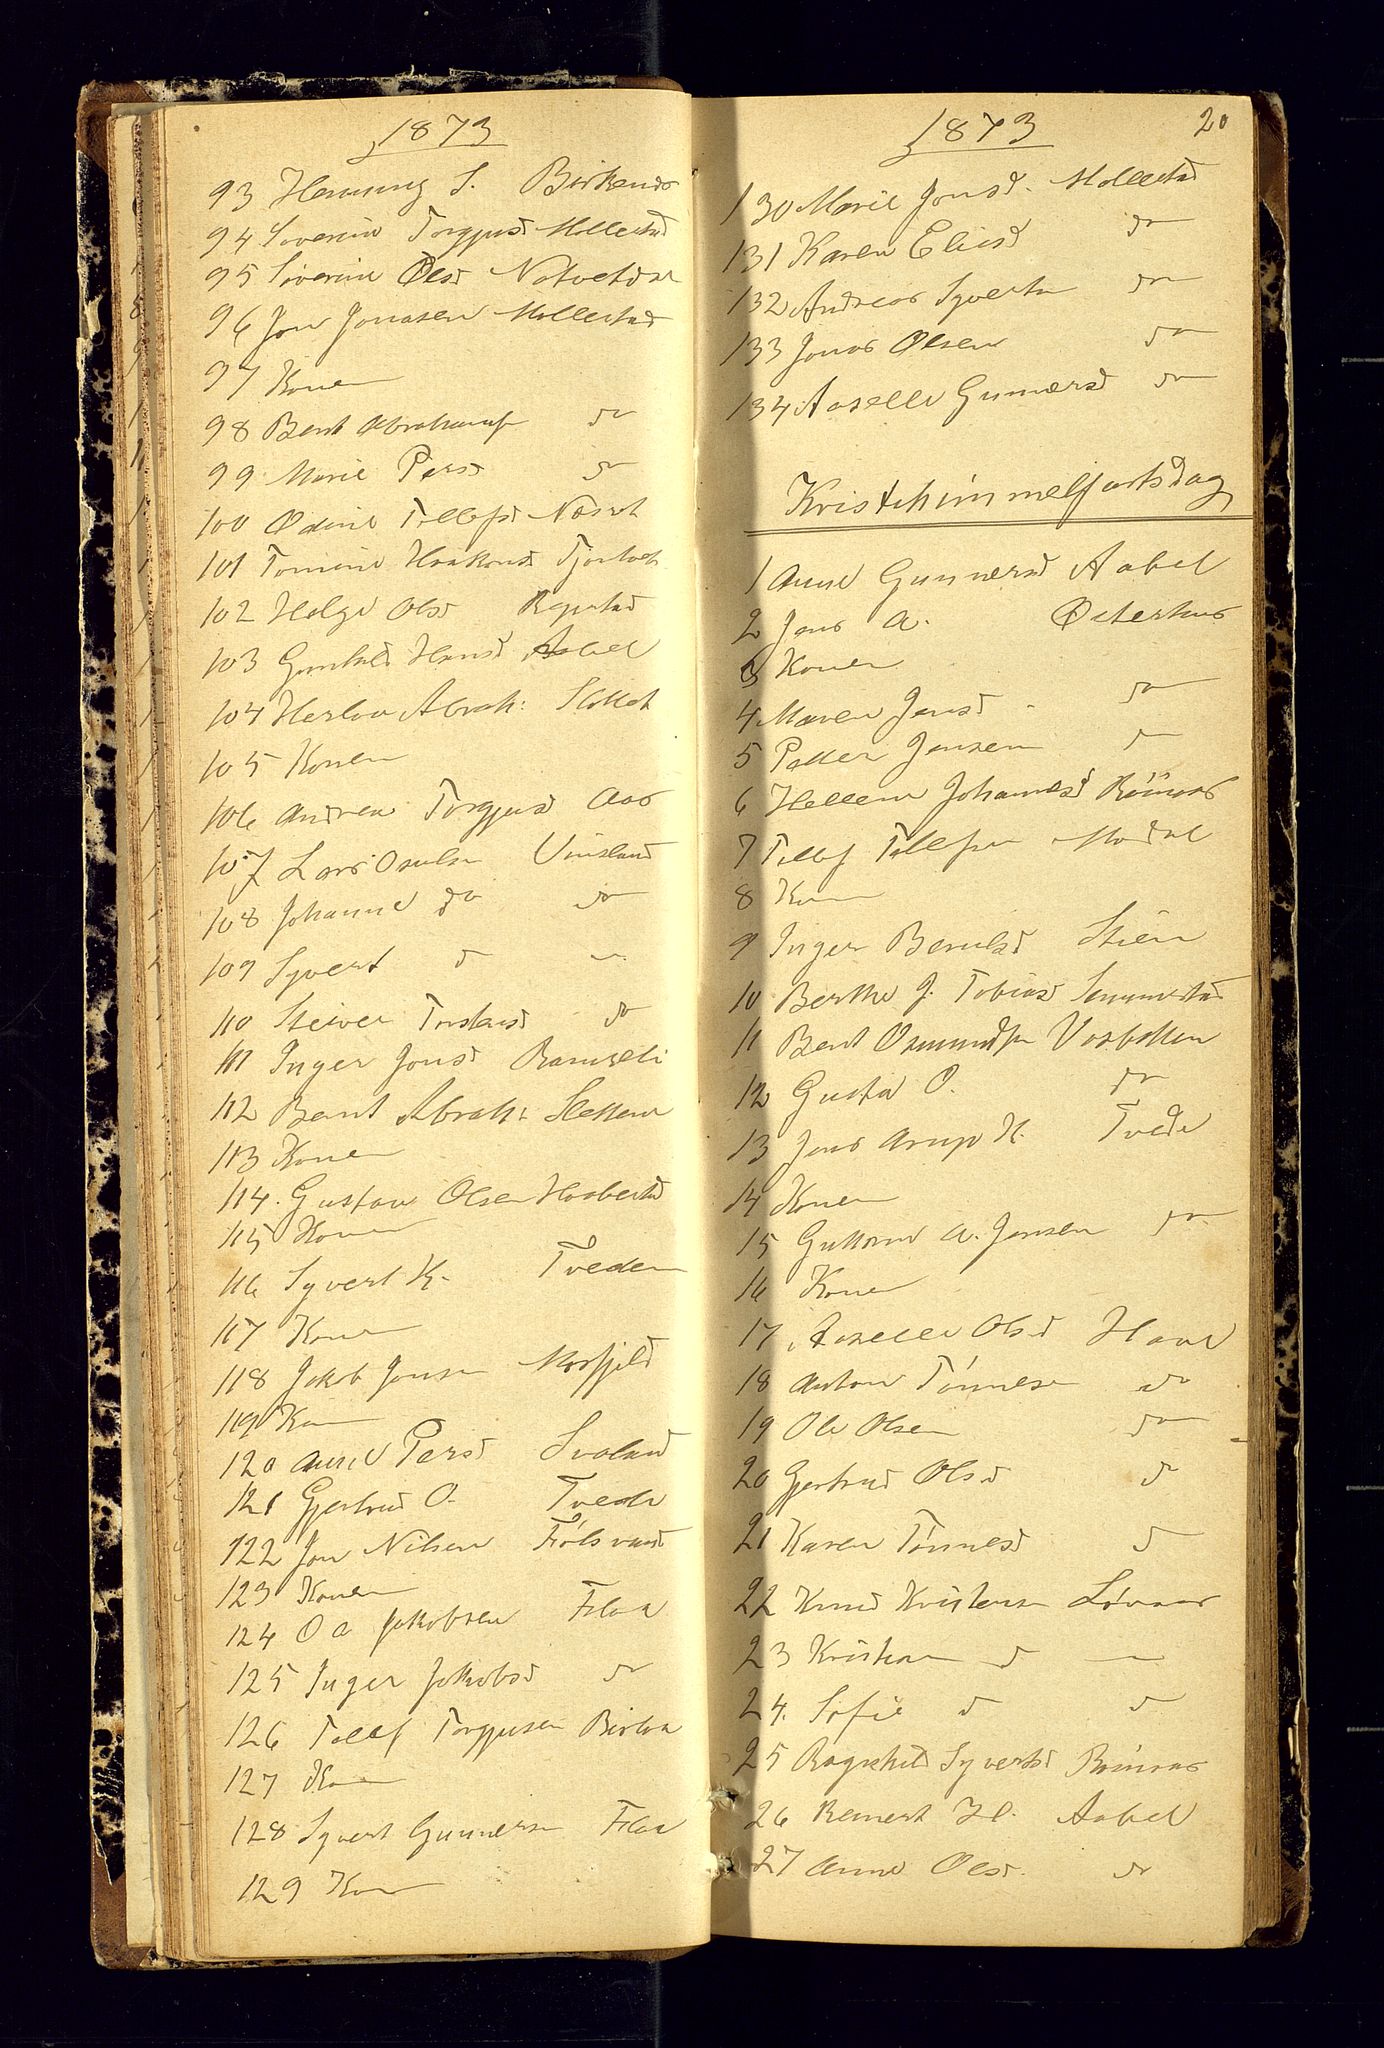 1873
93 Henning S. Birkenes
94 Severine Torgjusd Mollestad
95 Severine Olsd
96 Jon Jonasen Mollestad
97 Konen
98 Bent Abrahams do
99 Marie Persd do
100 Tellefsd
101 Tomine Haakonsd
102 Helge Olsd
103 Gunhild Hansd Aabel
104 Abrah:
105 Konen
106 Andrea Torgjusd Aas
107 Lars Osulsen Vinsland
108 Johanne do do
109 Syvert d
110 Torstensd do
111 Inger Jonsd Ramseli
112 Bent Abrah: Sletten
113 Konen
114. Gustav Olsen
115 Konen
116 Syvert K. Tveden
117 Konen
118 Jakob Jensen
119 Konen
120 Anne Persd Svaland
121 Gjertrud O. Tvede
122 Jon Nilsen
123 Konen
124 O A Jakobsen Flaa
125 Inger Jakobsd do
126 Tellef Torgjusen
127 Konen
128 Syvert Gunnersen Flaa
129 Konen
1873 20
130 Marie Jonsd. Mollestad
131 Karen Elisd do
132 Andreas Syverts do
133 Jonas Olsen do
134 Aaselle Gunnersd do
Kristihimmelfartsdag
1 Anne Gunnersd Aabel
2 Jens A. Østerhus
3 Konen
4 Maren Jensd do
5 Petter Jensen do
6 Hellene Johannesd Röinaas
7 Tellef Tellefsen
8 Konen
9 Inger Berulsd Stien
10 Berthe J. Tobiasd
11 Bent Osmundsen Vasbotten
12 Gusta O. do
13 Jens Arup H. Tvede
14 Konen
15 Guttorm A. Jensen do
16 Konen
17 Aaselle Olsd Have
18 Anton Tönnesen do
19 Ole Olsen do
20 Gjertrud Olsd d
21 Karen Tönnesd d
22 Knud Kristensen Lövaas
23 Kristian d
24. Sofie d d
25 Ragnhild Syvertsd Röinaas
26 Reinert H. Aabel
27 Anne Olsd. do